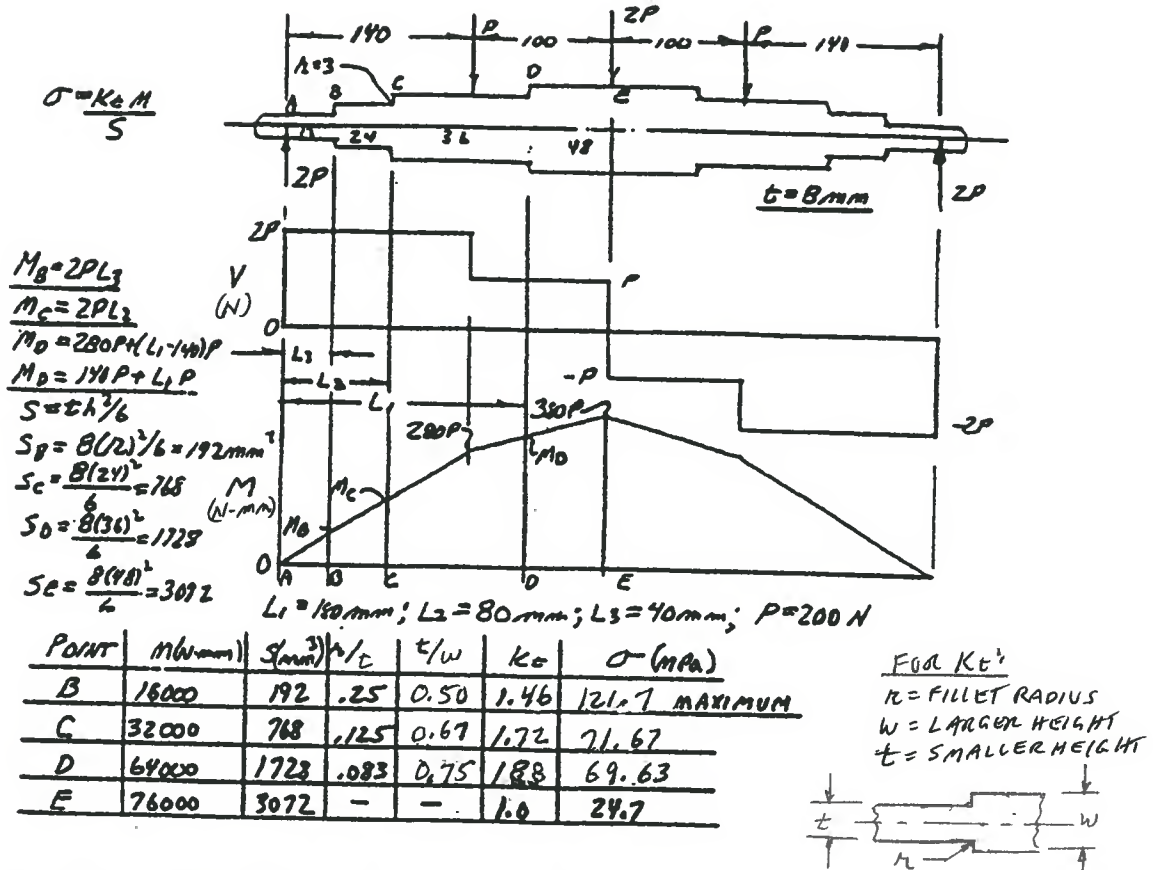 140 P 100 2P 100 P 140
r=3
A B C D E
σ = Kt M / S
12 24 36 48
2P 2P
t=8mm
2P
V
(N)
0
P
-P
-2P
MB=2PL3
MC=2PL2
MD=280P+(L1-140)P
MD=140P+L1P
S=th²/6
SB=8(12)²/6=192mm³
SC=8(24)²/6=768
SD=8(36)²/6=1728
SE=8(48)²/6=3092
L3
L2
L1
280P
380P
MD
MC
MB
M
(N-mm)
0
A B C D E
L1=180mm; L2=80mm; L3=40mm; P=200N
POINT M(N-mm) S(mm³) r/t t/w Kt σ(MPa)
B 16000 192 .25 0.50 1.46 121.7 MAXIMUM
C 32000 768 .125 0.67 1.72 71.67
D 64000 1728 .083 0.75 1.88 69.63
E 76000 3072 - - 1.0 24.7
FOR Kt:
r=FILLET RADIUS
W=LARGER HEIGHT
t=SMALLER HEIGHT
t
w
r